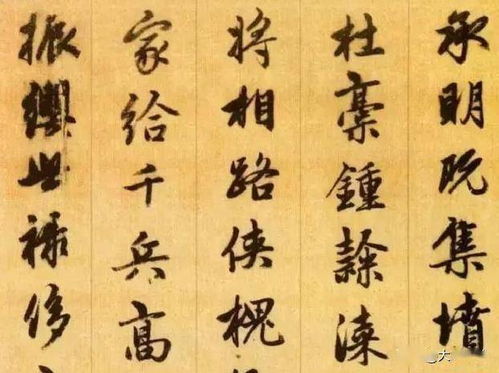 承明既集墳
杜稾鍾隸漆
將相路俠槐
家給千兵高
振纓世祿侈